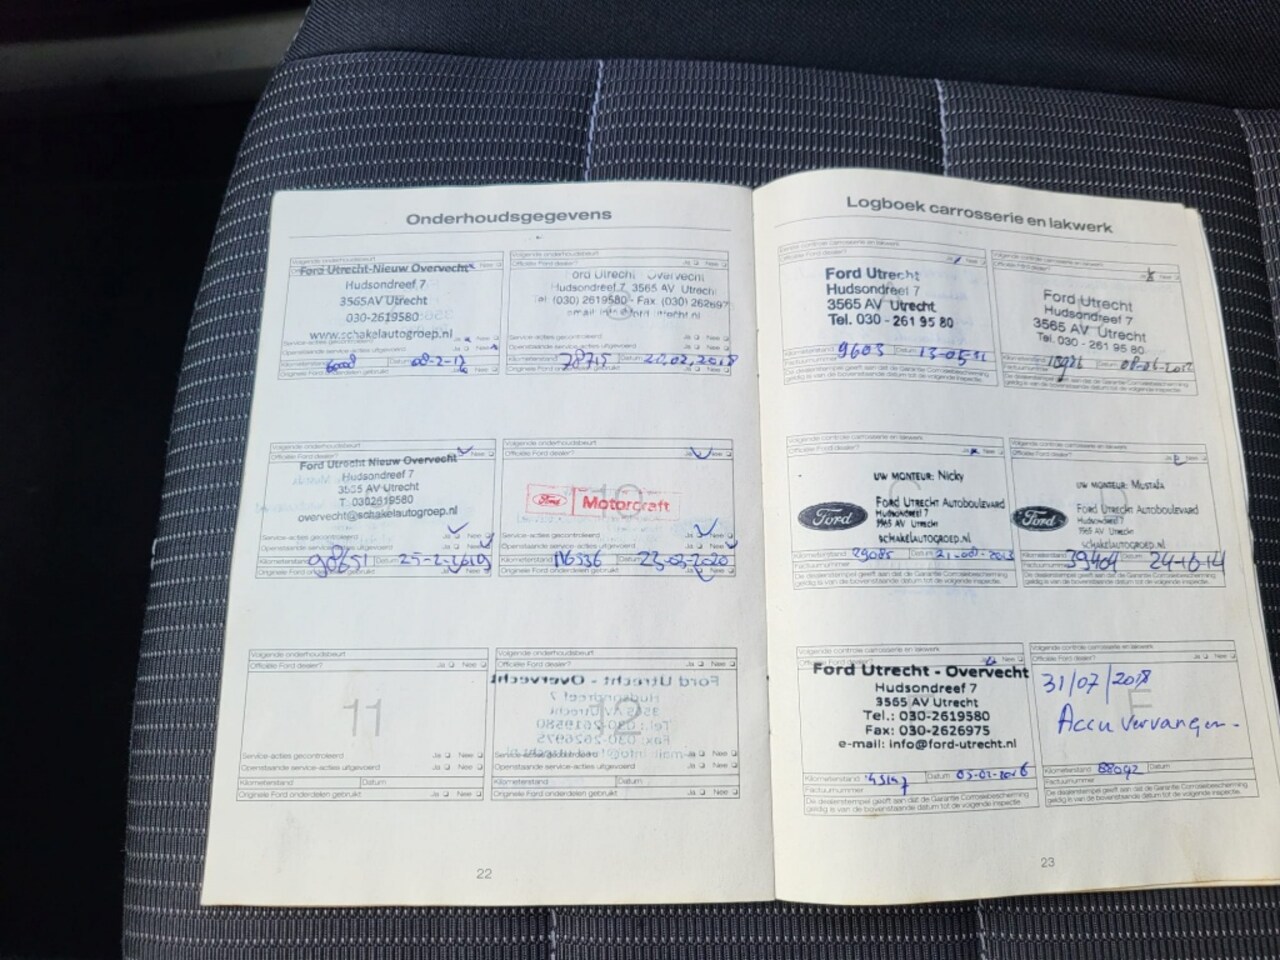 Onderhoudsgegevens
Volgende onderhoudsbeurt
Ford Utrecht-Nieuw Overvecht
Nee
Hudsonreef 7
3565AV Utrecht
030-2619580
www.schakelautogroep.nl
Service-acties gecontroleerd
Ja
Nee
Openstaande service-acties uitgevoerd
Ja
Nee
Kilometerstand
Datum
08-2-17
Originele Ford onderdelen gebruikt
Volgende onderhoudsbeurt
Officiële Ford dealer?
Ja
Nee
Ford Utrecht Overvecht
Hudsonreef 7 3565 AV Utrecht
Tel (030) 2619580 - Fax (030) 262697
email info@ford utrecht.nl
Service-acties gecontroleerd
Ja
Nee
Openstaande service-acties uitgevoerd
Ja
Nee
Kilometerstand 78715 Datum 20.02.2018
Originele Ford onderdelen gebruikt
Ja
Nee
Volgende onderhoudsbeurt
Officiële Ford dealer?
Ja
Nee
Ford Utrecht Nieuw Overvecht
Hudsonreef 7
3565 AV Utrecht
T 0302619580
overvecht@schakelautogroep.nl
Service-acties gecontroleerd
Ja
Nee
Openstaande service-acties uitgevoerd
Ja
Nee
90851 Datum 25-2-2019
Originele Ford onderdelen gebruikt
Ja
Nee
Volgende onderhoudsbeurt
Officiële Ford dealer?
Ja
Nee
10
Ford Motorcraft
Service-acties gecontroleerd
Ja
Nee
Openstaande service-acties uitgevoerd
Ja
Nee
Kilometerstand 116536 23-03-2020
Originele Ford onderdelen gebruikt
Ja
Nee
Volgende onderhoudsbeurt
Officiële Ford dealer?
Ja
Nee
11
Service-acties gecontroleerd
Ja
Nee
Openstaande service-acties uitgevoerd
Ja
Nee
Kilometerstand
Datum
Originele Ford onderdelen gebruikt
Ja
Nee
Volgende onderhoudsbeurt
Officiële Ford dealer?
Ja
Nee
12
Service-acties gecontroleerd
Ja
Nee
Openstaande service-acties uitgevoerd
Ja
Nee
Kilometerstand
Datum
Originele Ford onderdelen gebruikt
Ja
Nee
22
Logboek carrosserie en lakwerk
Eerste controle carrosserie en lakwerk
Officiële Ford dealer?
Ja
Nee
Ford Utrecht
Hudsonreef 7
3565 AV Utrecht
Tel. 030 - 261 95 80
Kilometerstand 9603 Datum 13-05-11
Factuurnummer
De dealerstempel geeft aan dat de Garantie Corrosiebescherming
geldig is van bovenstaande datum tot de volgende inspectie.
Volgende controle carrosserie en lakwerk
Officiële Ford dealer?
Ja
Nee
Ford Utrecht
Hudsonreef 7
3565 AV Utrecht
Tel. 030 - 261 95 80
Kilometerstand
Datum 08-06-2012
Factuurnummer
De dealerstempel geeft aan dat de Garantie Corrosiebescherming
geldig is van de bovenstaande datum tot de volgende inspectie.
Volgende controle carrosserie en lakwerk
Officiële Ford dealer?
Ja
Nee
UW MONTEUR: Nicky
Ford
FORD UTRECHT AUTOBOULEVARD
HUDSONDREEF 7
3565 AV UTRECHT
SCHAKELAUTOGROEP.NL
Kilometerstand 29085 Datum 21-08-2013
Factuurnummer
De dealerstempel geeft aan dat de Garantie Corrosiebescherming
geldig is van de bovenstaande datum tot de volgende inspectie.
Volgende controle carrosserie en lakwerk
Officiële Ford dealer?
Ja
Nee
UW MONTEUR: MUSTAFA
Ford
FORD UTRECHT AUTOBOULEVARD
HUDSONDREEF 7
3565 AV UTRECHT
SCHAKELAUTOGROEP.NL
Kilometerstand
Datum
Factuurnummer 39404 24-10-14
De dealerstempel geeft aan dat de Garantie Corrosiebescherming
geldig is van de bovenstaande datum tot de volgende inspectie.
Volgende controle carrosserie en lakwerk
Officiële Ford dealer?
Ja
Nee
Ford Utrecht - Overvecht
Hudsondreef 7
3565 AV Utrecht
Tel.: 030-2619580
Fax: 030-2626975
e-mail: info@ford-utrecht.nl
Kilometerstand
Datum 03-02-2016
Factuurnummer
De dealerstempel geeft aan dat de Garantie Corrosiebescherming
geldig is van de bovenstaande datum tot de volgende inspectie.
Volgende controle carrosserie en lakwerk
Officiële Ford dealer?
Ja
Nee
31/07/2018
Accu vervangen.
Kilometerstand 88092 Datum
Factuurnummer
De dealerstempel geeft aan dat de Garantie Corrosiebescherming
geldig is van de bovenstaande datum tot de volgende inspectie.
23